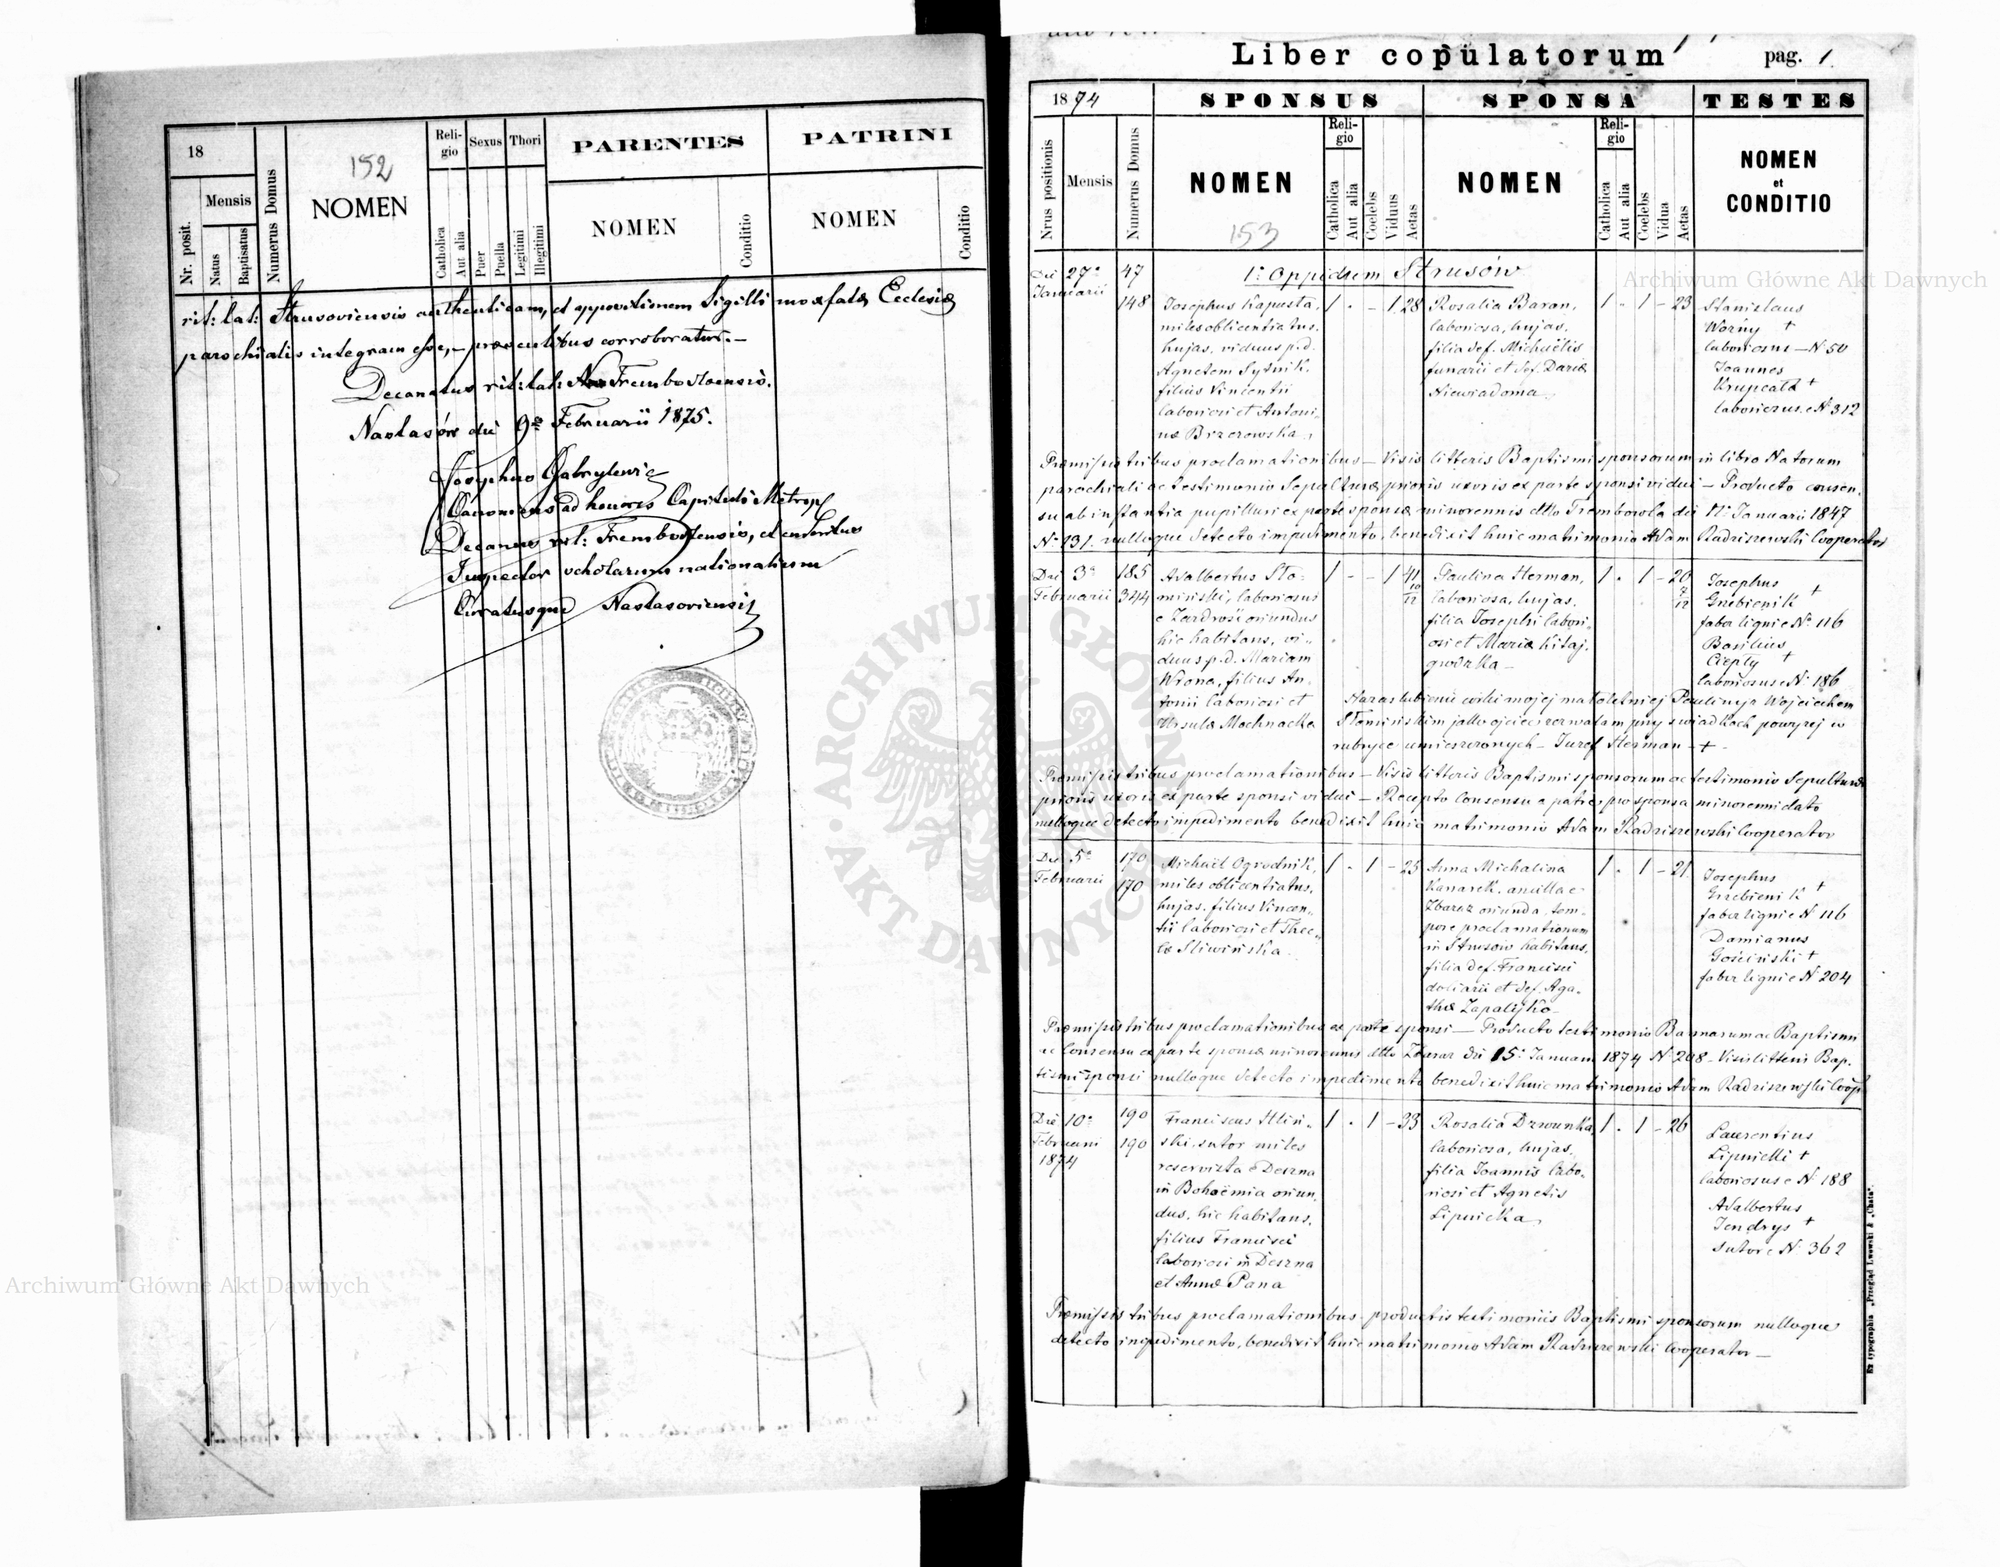 18
152
Mensis
Nr. posit.
Natus
Baptisatus
Numerus Domus
NOMEN
Reli-
gio
Catholica
Aut alia
Sexus
Puer
Puella
Thori
Legitimi
Illegitimi
PARENTES
NOMEN
Conditio
PATRINI
NOMEN
Conditio
rit: lat: Strusoviensis authenticam, et appositionem Sigilli Ecclesiæ
parochialis integram esse, præsentibus corroboratur.—
Decanatus rit: lat: Trembovlensis.
Nastasów die 9ª Februarii 1875.
Josephus Gabrylewicz
Canonicus ad honores Capituli Metrop
Decanus rit: Trembovlensis, et
Inspector scholarum nationalium
Curatusque Nastasoviensis
Liber copulatorum
pag. 1
1874
SPONSUS
SPONSA
TESTES
Nrus positionis
Mensis
Numerus Domus
NOMEN
153
Reli-
gio
Catholica
Aut alia
Coelebs
Viduus
Aetas
NOMEN
Reli-
gio
Catholica
Aut alia
Coelebs
Vidua
Aetas
NOMEN
et
CONDITIO
1º Oppidum Strusów
Die 27ª
Januarii
47
148
Josephus Kapusta,
miles oblicentiatus,
hujas, viduus p.d.
Agnetem Sytnik,
filius Vincentii
laboriosi et Antoni-
næ Brzezowska,
1 - - 1 28
Rosalia Baran,
laboriosa, hujas,
filia def. Michaëlis
funarii et def. Dariæ
Niewiadoma.
1 - 1 - 23
Stanislaus
Worny +
laboriosus — N 50
Joannes
Krupcała +
laboriosus e N 312
Præmissis tribus proclamationibus — Visis litteris Baptismi sponsorum in libro Natorum
parochiali ac testimonio Sepulturæ prioris uxoris ex parte sponsi vidui — Producto consen-
su ab instantia pupillari ex parte sponsæ minorennis dtto Trembowla die 17ª Januarii 1847
Nº 131. nulloque detecto impedimento, benedixit huic matrimonio Adam Radziszewski Cooperator
Die 3ª
Februarii
185
344
Adalbertus Sło-
miński, laboriosus
e Zazdrość oriundus
hic habitans, vi-
duus p.d. Mariam
Wrona, filius An-
tonii laboriosi et
Ursulæ Mochnacka
1 - - 1 41 10/12
Paulina Herman,
laboriosa, hujas,
filia Josephi labori-
osi et Mariæ Kitaj-
gródzka —
1 - 1 - 20 7/12
Josephus
Grzebienik +
faber lignic Nº 116
Basilius
Ciepły +
laboriosus e N 186
Na zaślubienie córki mojej małoletniej Pauliny z Wojciechem
Słomińskim jako ojciec zezwalam przy świadkach powyżej w
rubryce umieszczonych — Józef Herman +
Præmissis tribus proclamationibus — Visis litteris Baptismi sponsorum ac testimonio Sepulturæ
prioris uxoris ex parte sponsi vidui — Recepto Consensu a patre pro sponsa minorenni dato
nulloque detecto impedimento benedixit huic matrimonio Adam Radziszewski Cooperator
Die 5ª
Februarii
170
170
Michaël Ogrodnik,
miles oblicentiatus,
hujas, filius Vincen-
tii laboriosi et Thec-
læ Śliwińska.
1 - 1 - 25
Anna Michalina
Kanarek, ancilla e
Zbaraż oriunda, tem-
pore proclamationum
in Strusów habitans,
filia def. Francisci
doliarii et def. Aga-
thæ
1 - 1 - 21
Josephus
Grzebienik +
faber lignic N 116
Damianus
Gościński +
faber lignic N 204
Præmissis tribus proclamationibus ex parte sponsi — Producto testimonio Bannorum ac Baptismi
ac Consensu ex parte sponsæ minorennis dtto Zbaraz die 15ª Januarii 1874 N 208 - Visis litteris Bap-
tismi sponsi nulloque detecto impedimento benedixit huic matrimonio Adam Radziszewski Coop
Die 10ª
Februarii
1874
190
190
Franciscus Hlin-
ski, sutor miles
reservista e Deszna
in Bohoëmia oriun-
dus, hic habitans,
filius Francisci
laboriosi in Deszna
et Annæ Pana
1 - 1 - 33
Rosalia Dzwonka,
laboriosa, hujas,
filia Joannis labo-
riosi et Agnetis
Lipnicka
1 - 1 - 26
Laurentius
Lipnicki +
laboriosus e N 188
Adalbertus
Jendrys +
sutor e N 362
Præmissis tribus proclamationibus. productis testimoniis Baptismi sponsorum nulloque
detecto impedimento, benedixit huic matrimonio Adam Radziszewski Cooperator —
Ex typographia „Przegląd Lwowski & „Chata".
Archiwum Główne Akt Dawnych
Archiwum Główne Akt Dawnych
ARCHIWUM GŁÓWNE
AKT DAWNYCH